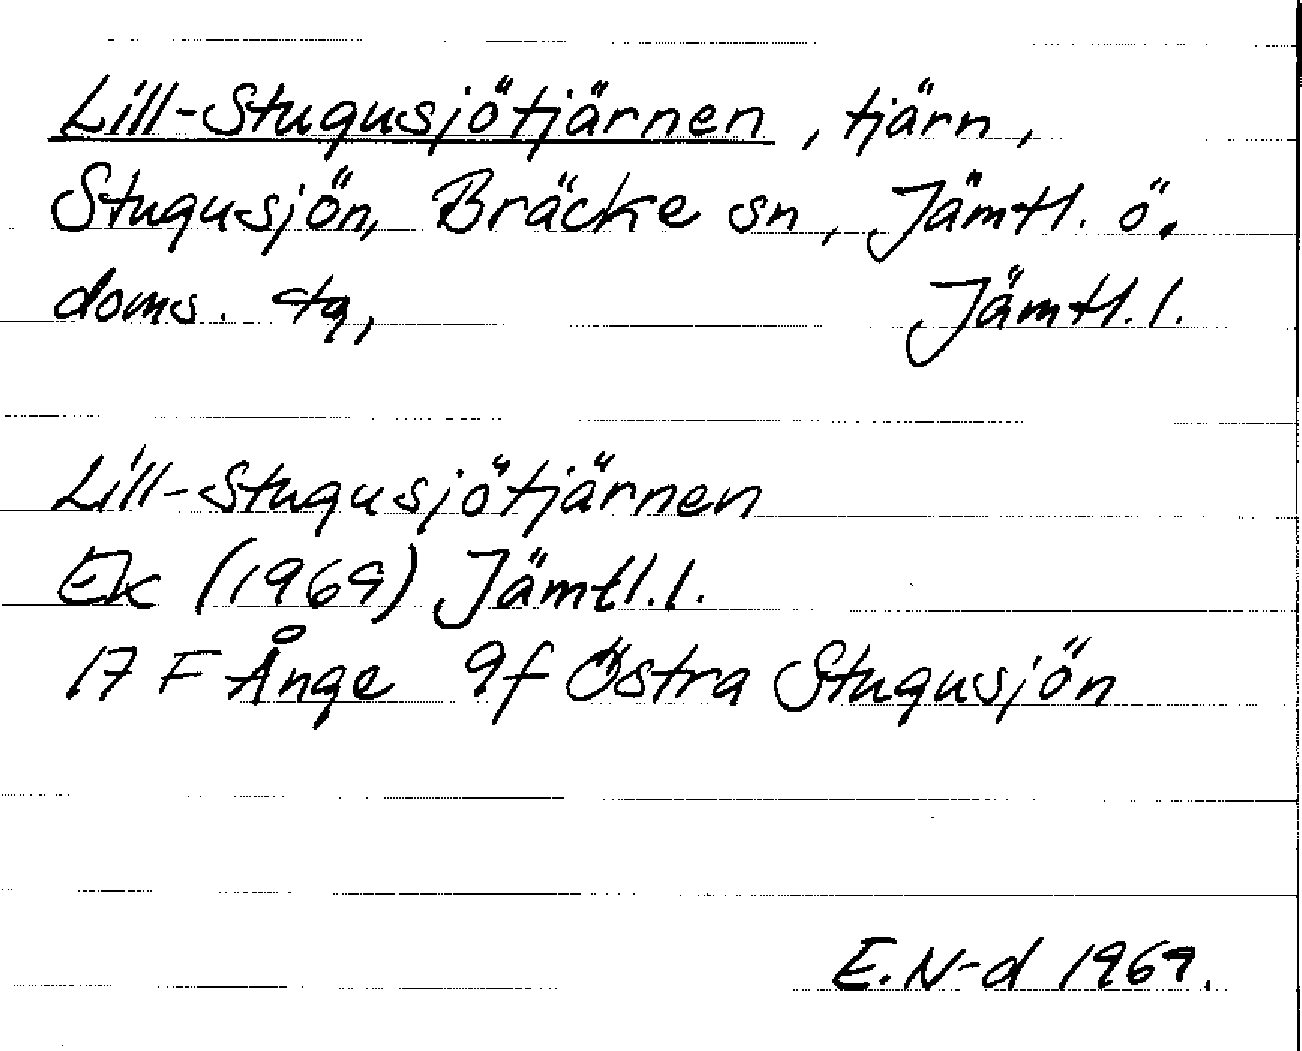 Lill-Stugusjötjärnen, tjärn,
Stugusjön, Bräcke sn, Jämtl. ö.
doms. tg, Jämtl.l.
Lill-Stugusjötjärnen
Ek (1969) Jämtl.l.
17 F Ånge 9f Östra Stugusjön
E.N-d 1969.